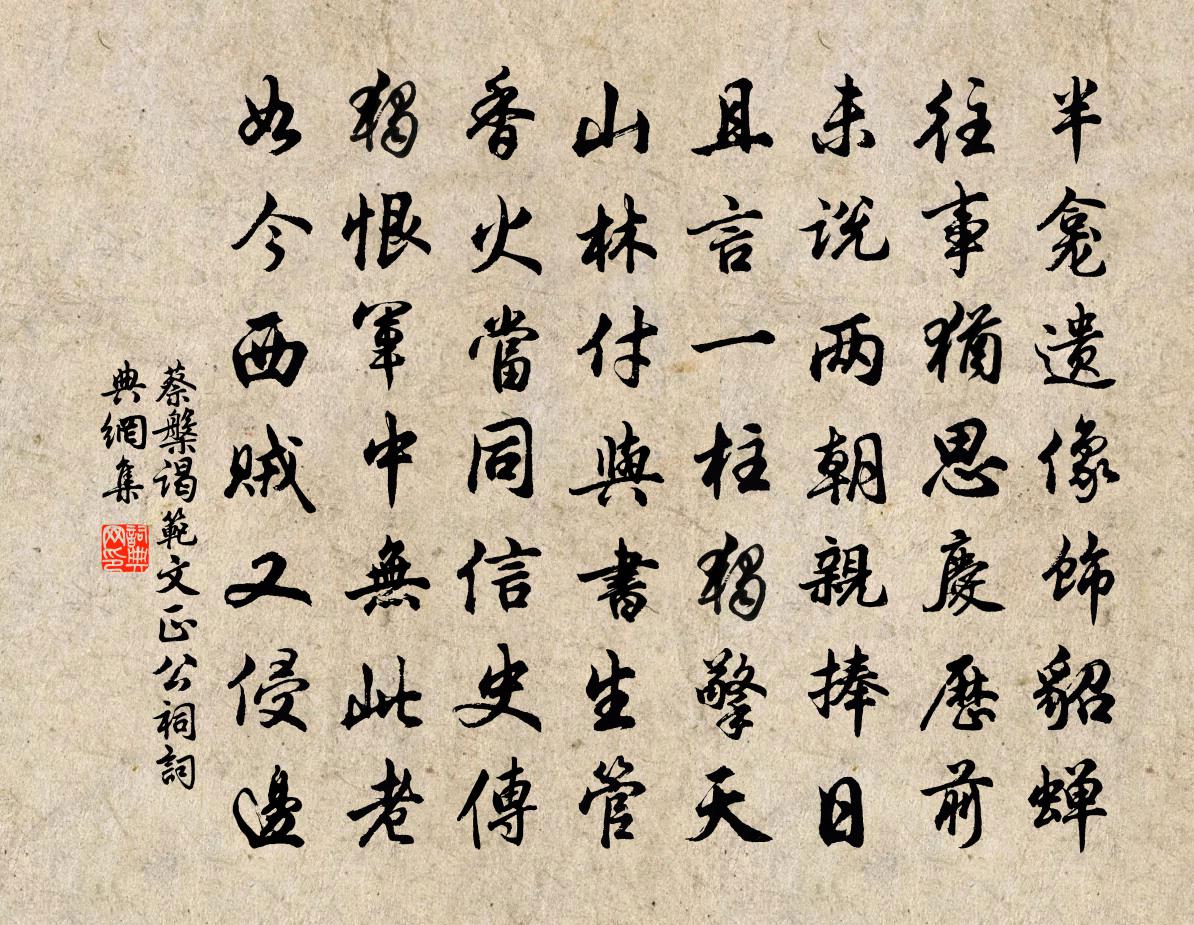 半龛遗像饰貂蝉
往事猶思慶歷前
未说两朝親捧日
且言一柱獨擎天
山林付與書生管
香火當同信史傳
獨恨軍中無此老
如今西贼又侵邊
蔡槃谒範文正公祠詞
典網集
詞典
网印